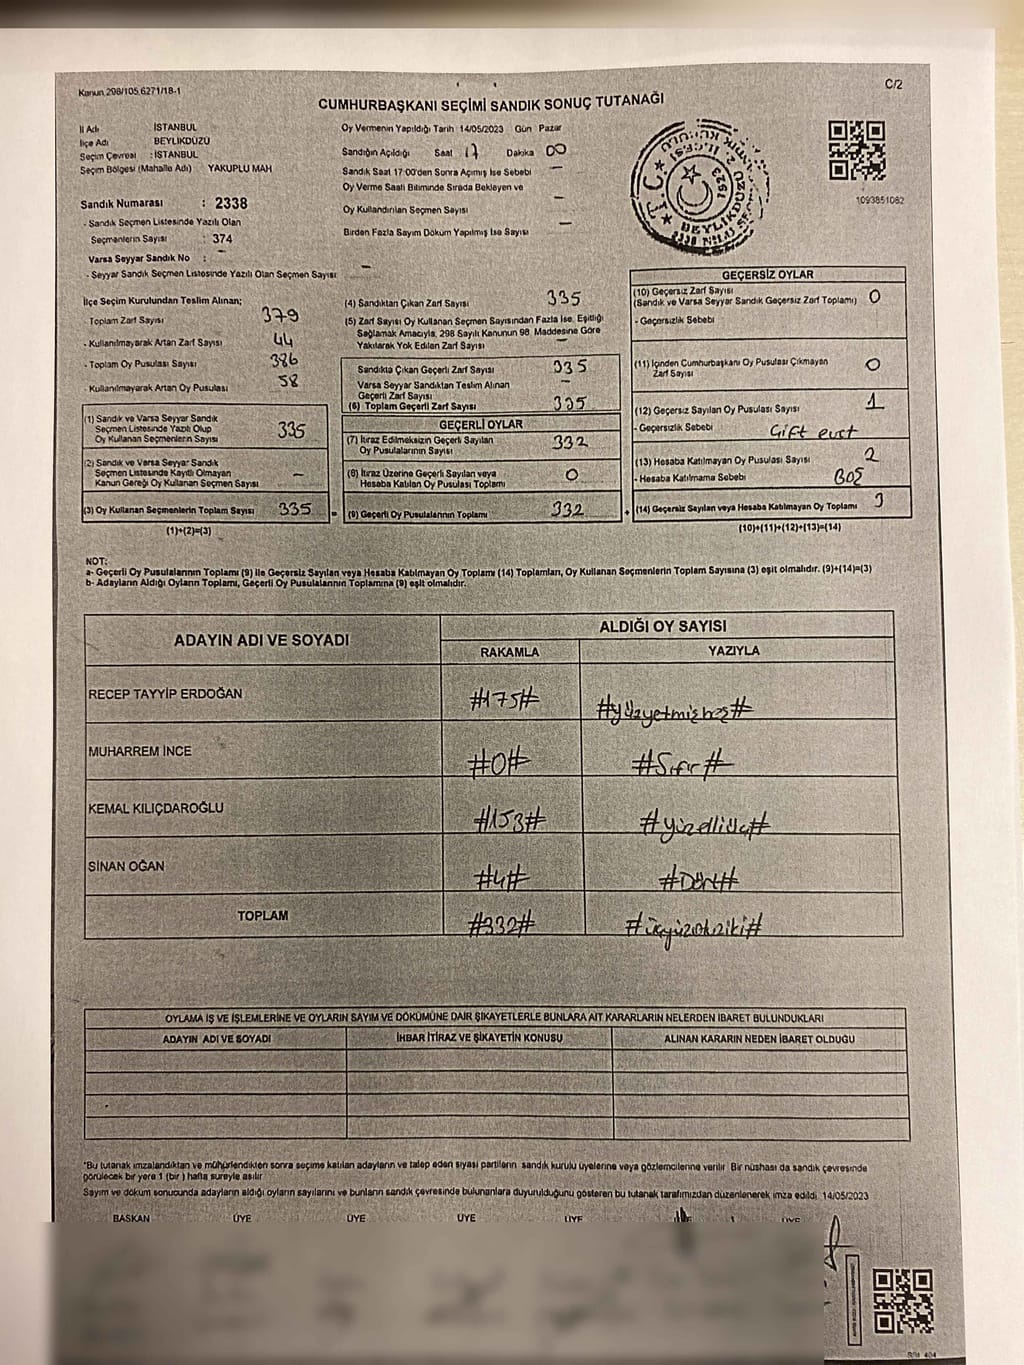 Kanun 298/105.6271/18-1
C/2
CUMHURBAŞKANI SEÇİMİ SANDIK SONUÇ TUTANAĞI
İl Adı İSTANBUL
İlçe Adı BEYLİKDÜZÜ
Seçim Çevresi : İSTANBUL
Seçim Bölgesi (Mahalle Adı) YAKUPLU MAH
Sandık Numarası : 2338
- Sandık Seçmen Listesinde Yazılı Olan
Seçmenlerin Sayısı : 374
Varsa Seyyar Sandık No : –
- Seyyar Sandık Seçmen Listesinde Yazılı Olan Seçmen Sayısı –
Oy Vermenin Yapıldığı Tarih 14/05/2023 Gün Pazar
Sandığın Açıldığı Saat 17 Dakika 00
Sandık Saat 17:00'den Sonra Açımış İse Sebebi –
Oy Verme Saati Bitiminde Sırada Bekleyen ve
Oy Kullandırılan Seçmen Sayısı –
Birden Fazla Sayım Döküm Yapılmış İse Sayısı –
T.C.
BEYLİKDÜZÜ
1923
1093851082
İlçe Seçim Kurulundan Teslim Alınan;
- Toplam Zarf Sayısı 379
- Kullanılmayarak Artan Zarf Sayısı 44
- Toplam Oy Pusulası Sayısı 386
- Kullanılmayarak Artan Oy Pusulası 58
(1) Sandık ve Varsa Seyyar Sandık
Seçmen Listesinde Yazılı Olup
Oy Kullanan Seçmenlerin Sayısı 335
(2) Sandık ve Varsa Seyyar Sandık
Seçmen Listesinde Kayıtlı Olmayan
Kanun Gereği Oy Kullanan Seçmen Sayısı –
(3) Oy Kullanan Seçmenlerin Toplam Sayısı 335
(1)+(2)=(3)
(4) Sandıktan Çıkan Zarf Sayısı 335
(5) Zarf Sayısı Oy Kullanan Seçmen Sayısından Fazla İse, Eşitliği
Sağlamak Amacıyla, 298 Sayılı Kanunun 98. Maddesine Göre
Yakılarak Yok Edilen Zarf Sayısı –
Sandıkta Çıkan Geçerli Zarf Sayısı 335
Varsa Seyyar Sandıktan Teslim Alınan
Geçerli Zarf Sayısı –
(6) Toplam Geçerli Zarf Sayısı 335
GEÇERLİ OYLAR
(7) İtiraz Edilmeksizin Geçerli Sayılan
Oy Pusulalarının Sayısı 332
(8) İtiraz Üzerine Geçerli Sayılan veya
Hesaba Katılan Oy Pusulası Toplamı 0
= (9) Geçerli Oy Pusulalarının Toplamı 332
GEÇERSİZ OYLAR
(10) Geçersiz Zarf Sayısı
(Sandık ve Varsa Seyyar Sandık Geçersiz Zarf Toplamı) 0
- Geçersizlik Sebebi
(11) İçinden Cumhurbaşkanı Oy Pusulası Çıkmayan
Zarf Sayısı 0
(12) Geçersiz Sayılan Oy Pusulası Sayısı 1
- Geçersizlik Sebebi Çift evet
(13) Hesaba Katılmayan Oy Pusulası Sayısı 2
- Hesaba Katılmama Sebebi BOŞ
+ (14) Geçersiz Sayılan veya Hesaba Katılmayan Oy Toplamı 3
(10)+(11)+(12)+(13)=(14)
NOT:
a- Geçerli Oy Pusulalarının Toplamı (9) ile Geçersiz Sayılan veya Hesaba Katılmayan Oy Toplamı (14) Toplamları, Oy Kullanan Seçmenlerin Toplam Sayısına (3) eşit olmalıdır. (9)+(14)=(3)
b- Adayların Aldığı Oyların Toplamı, Geçerli Oy Pusulalarının Toplamına (9) eşit olmalıdır.
ADAYIN ADI VE SOYADI
ALDIĞI OY SAYISI
RAKAMLA YAZIYLA
RECEP TAYYİP ERDOĞAN #175# #yüzyetmişbeş#
MUHARREM İNCE #0# #Sıfır#
KEMAL KILIÇDAROĞLU #153# #yüzelliüç#
SİNAN OĞAN #4# #Dört#
TOPLAM #332# #üçyüzotuziki#
OYLAMA İŞ VE İŞLEMLERİNE VE OYLARIN SAYIM VE DÖKÜMÜNE DAİR ŞİKAYETLERLE BUNLARA AİT KARARLARIN NELERDEN İBARET BULUNDUKLARI
ADAYIN ADI VE SOYADI İHBAR İTİRAZ VE ŞİKAYETİN KONUSU ALINAN KARARIN NEDEN İBARET OLDUĞU
*Bu tutanak imzalandıktan ve mühürlendikten sonra seçime katılan adayların ve talep eden siyasi partilerin sandık kurulu üyelerine veya gözlemcilerine verilir. Bir nüshası da sandık çevresinde
görülecek bir yere 1 (bir) hafta süreyle asılır
Sayım ve döküm sonucunda adayların aldığı oyların sayılarını ve bunların sandık çevresinde bulunanlara duyurulduğunu gösteren bu tutanak tarafımızdan düzenlenerek imza edildi. 14/05/2023
BAŞKAN ÜYE ÜYE ÜYE ÜYE ÜYE ÜYE